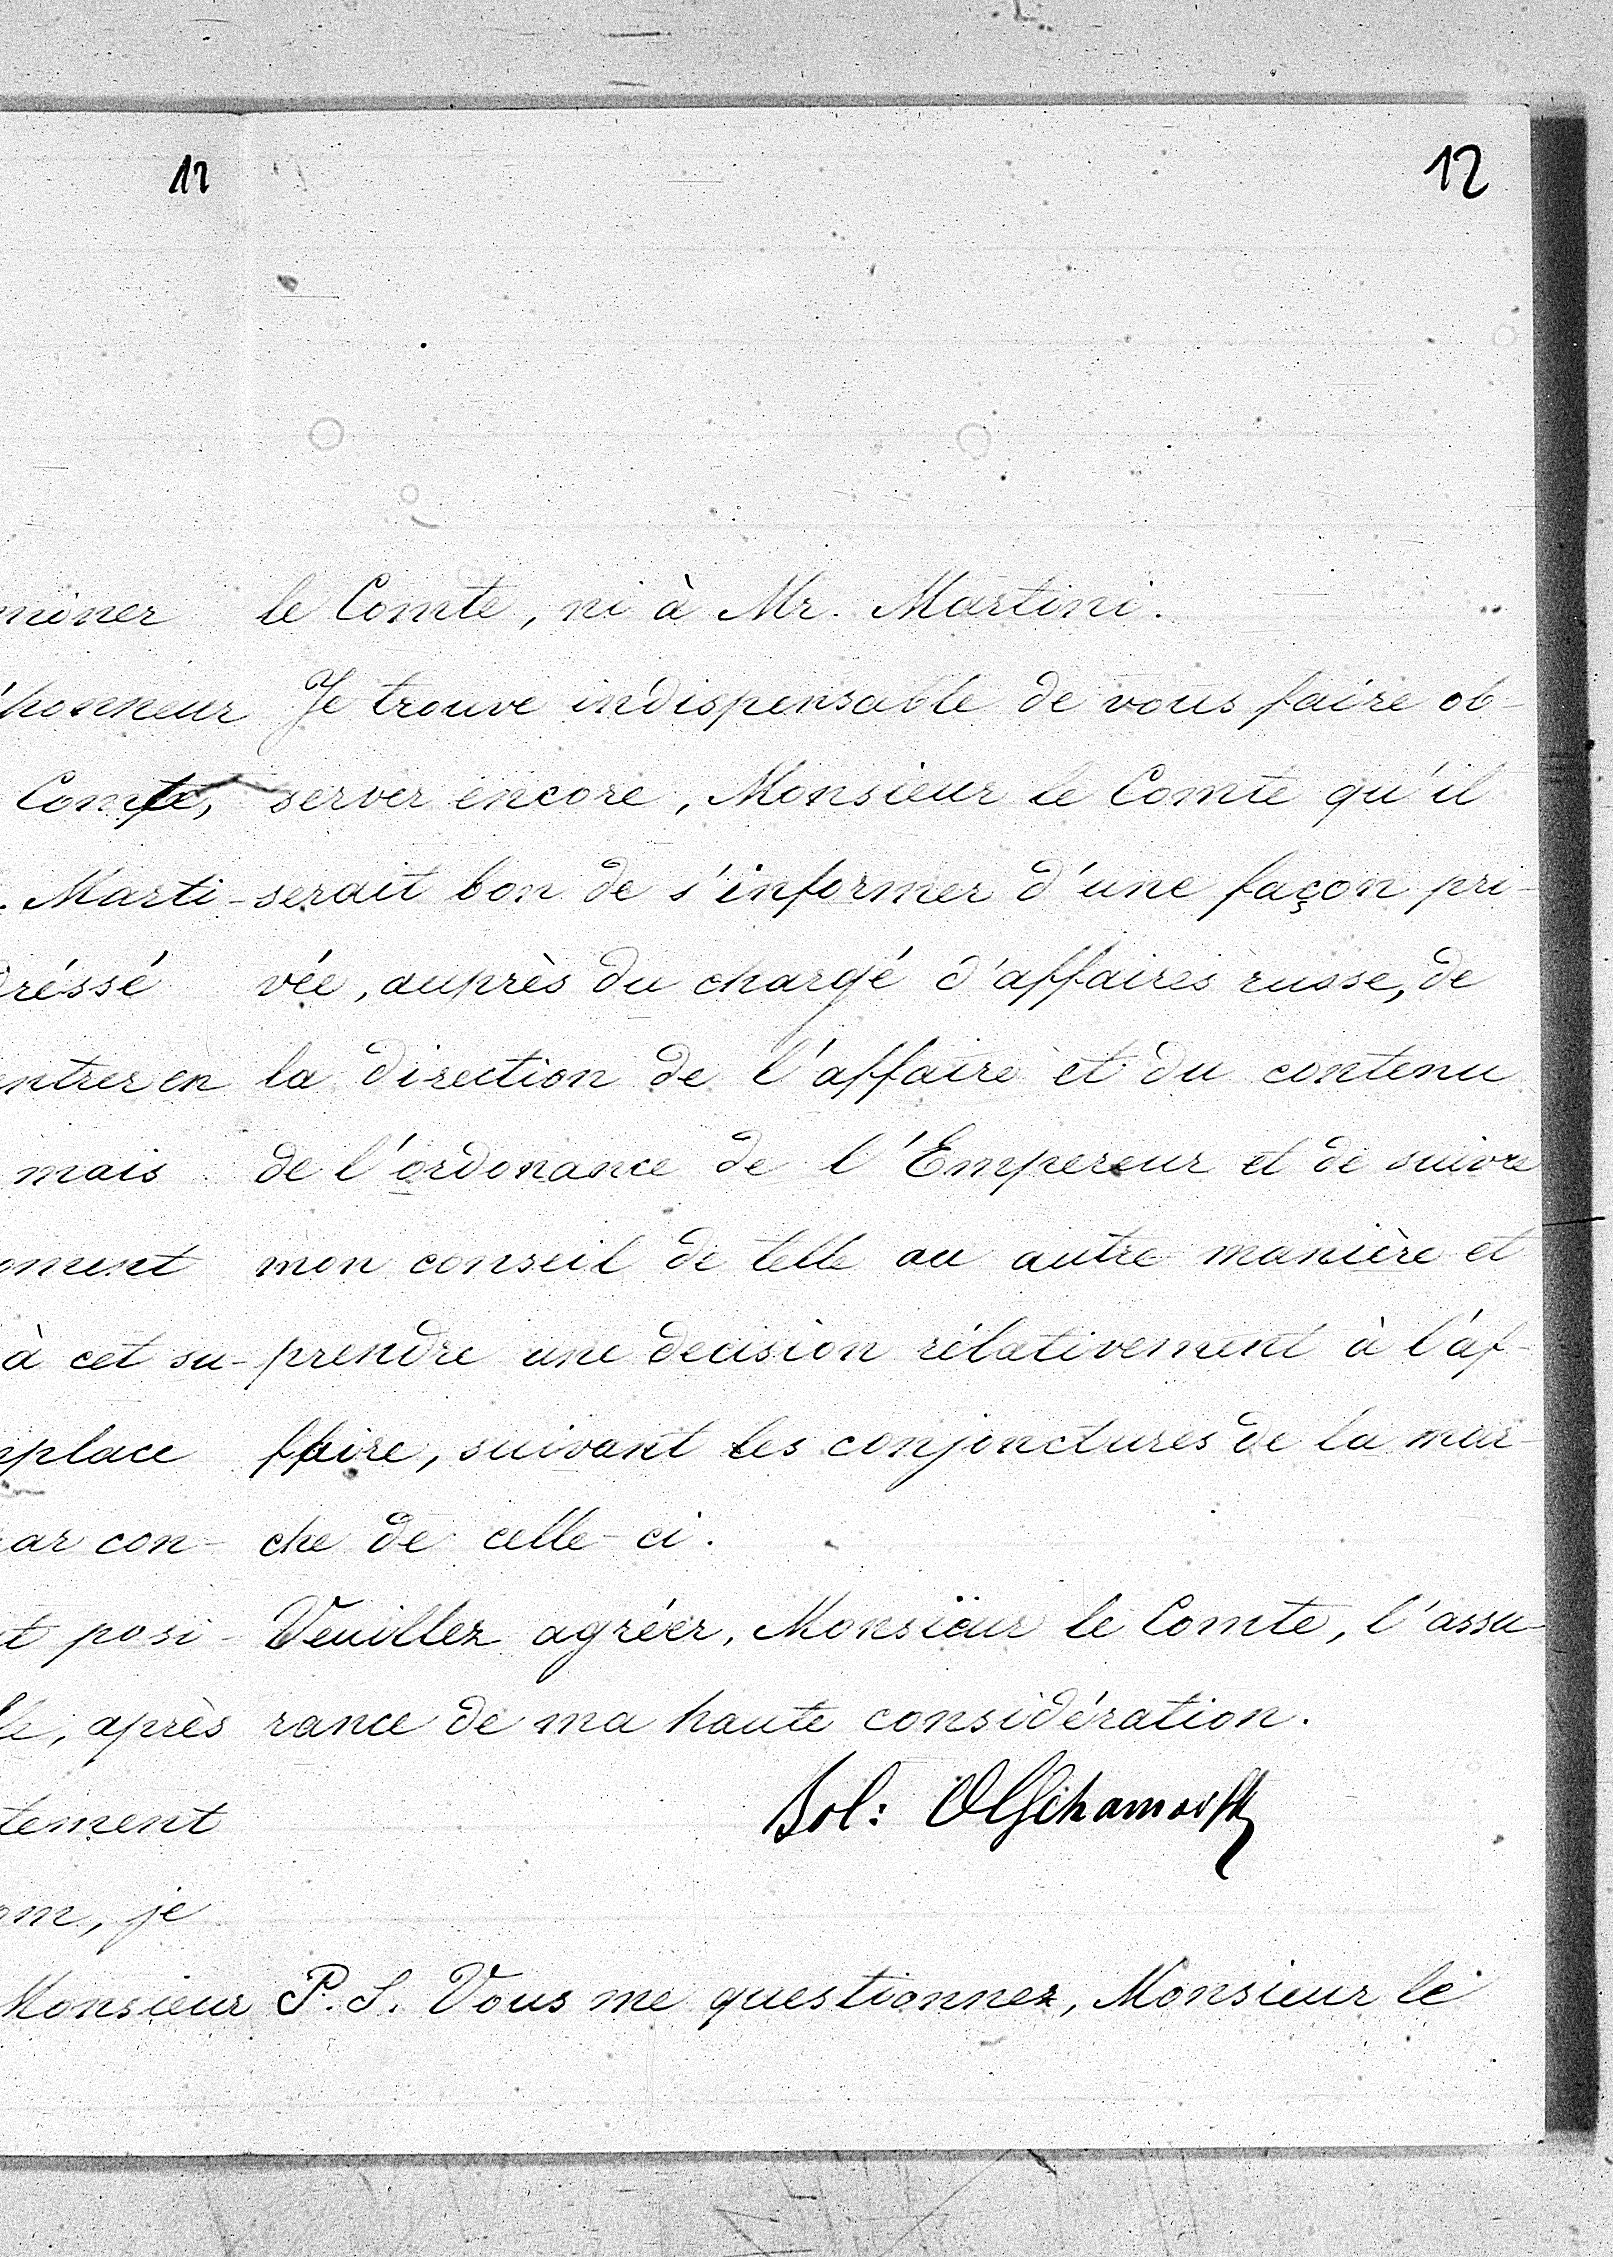 12
le Comte, ni à Mr. Martini.
Je trouve indispensable de vous faire ob-
server encore, Monsieur le Comte qu'il
serait bon de s'informer d'une façon pri-
vée, auprès du chargé d'affaires russe, de
la direction de l'affaire et du contenu
de l'ordonance de l'Empereur et de suivre
mon conseil de telle ou autre manière et
prendre une decision rélativement à l'af-
faire, suivant les conjonctures de la mar-
che de celle-ci.
Veuillez agréer, Monsieur le Comte, l'assu-
rance de ma haute considération.
Sol: Olschamowsky
P.S. Vous me questionnez, Monsieur le
11
miner
'honneur
Comte,
. Marti-
dréssé
entrer en
mais
oment
à cet su-
place
par con-
t posi-
le, après
tement
om, je
Monsieur